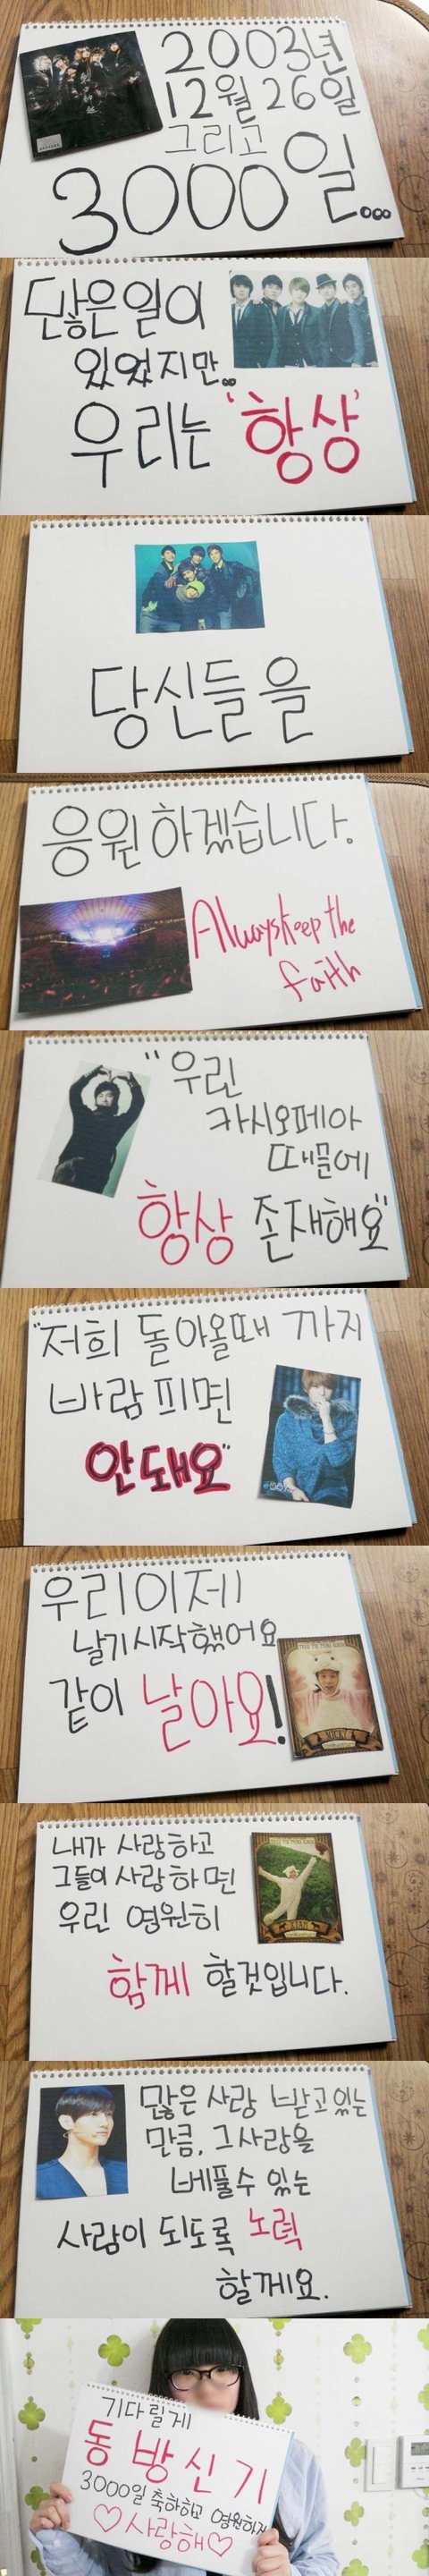 2003년
12월 26일
그리고
3000일...
많은일이
있었지만..
우리는 '항상'
당신들을
응원하겠습니다.
Always keep the
faith
"우린
카시오페아
때문에
항상 존재해요"
"저희 돌아올때 까지
바람피면
안돼요"
우리이제
날기시작했어요
같이 날아요!
내가 사랑하고
그들이 사랑하면
우린 영원히
함께 할것입니다.
많은 사랑 받고있는
만큼, 그사랑을
베풀수 있는
사람이 되도록 노력
할께요.
기다릴게
동방신기
3000일 축하하고 영원하자
♡사랑해♡